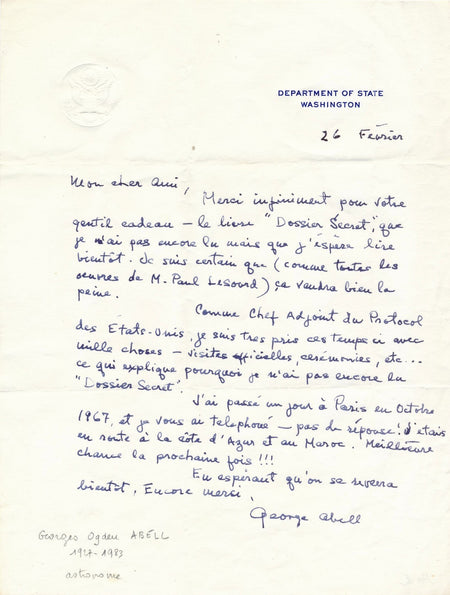 DEPARTMENT OF STATE
WASHINGTON
26 Février
Mon cher Ami,
Merci infiniment pour votre
gentil cadeau – le livre "Dossier Secret", que
je n'ai pas encore lu mais que j'éspère lire
bientôt. Je suis certain que (comme toutes les
oeuvres de M. Paul Lesourd) ça vaudra bien la
peine.
Comme Chef Adjoint du Protocol
des États-Unis, je suis tres pris ces temps ci avec
mille choses – visites officielles, cérémonies, etc...
ce qui explique pourquoi je n'ai pas encore lu
"Dossier Secret".
J'ai passé un jour à Paris en Octobre
1967, et je vous ai telephoné – pas de réponse! J'étais
en route à la Côte d'Azur et au Maroc. Meilleure
chance la prochaine fois!!!
En espérant qu'on se reverra
bientôt, Encore merci,
George Abell
Georges Ogden ABELL
1927-1983
astronome